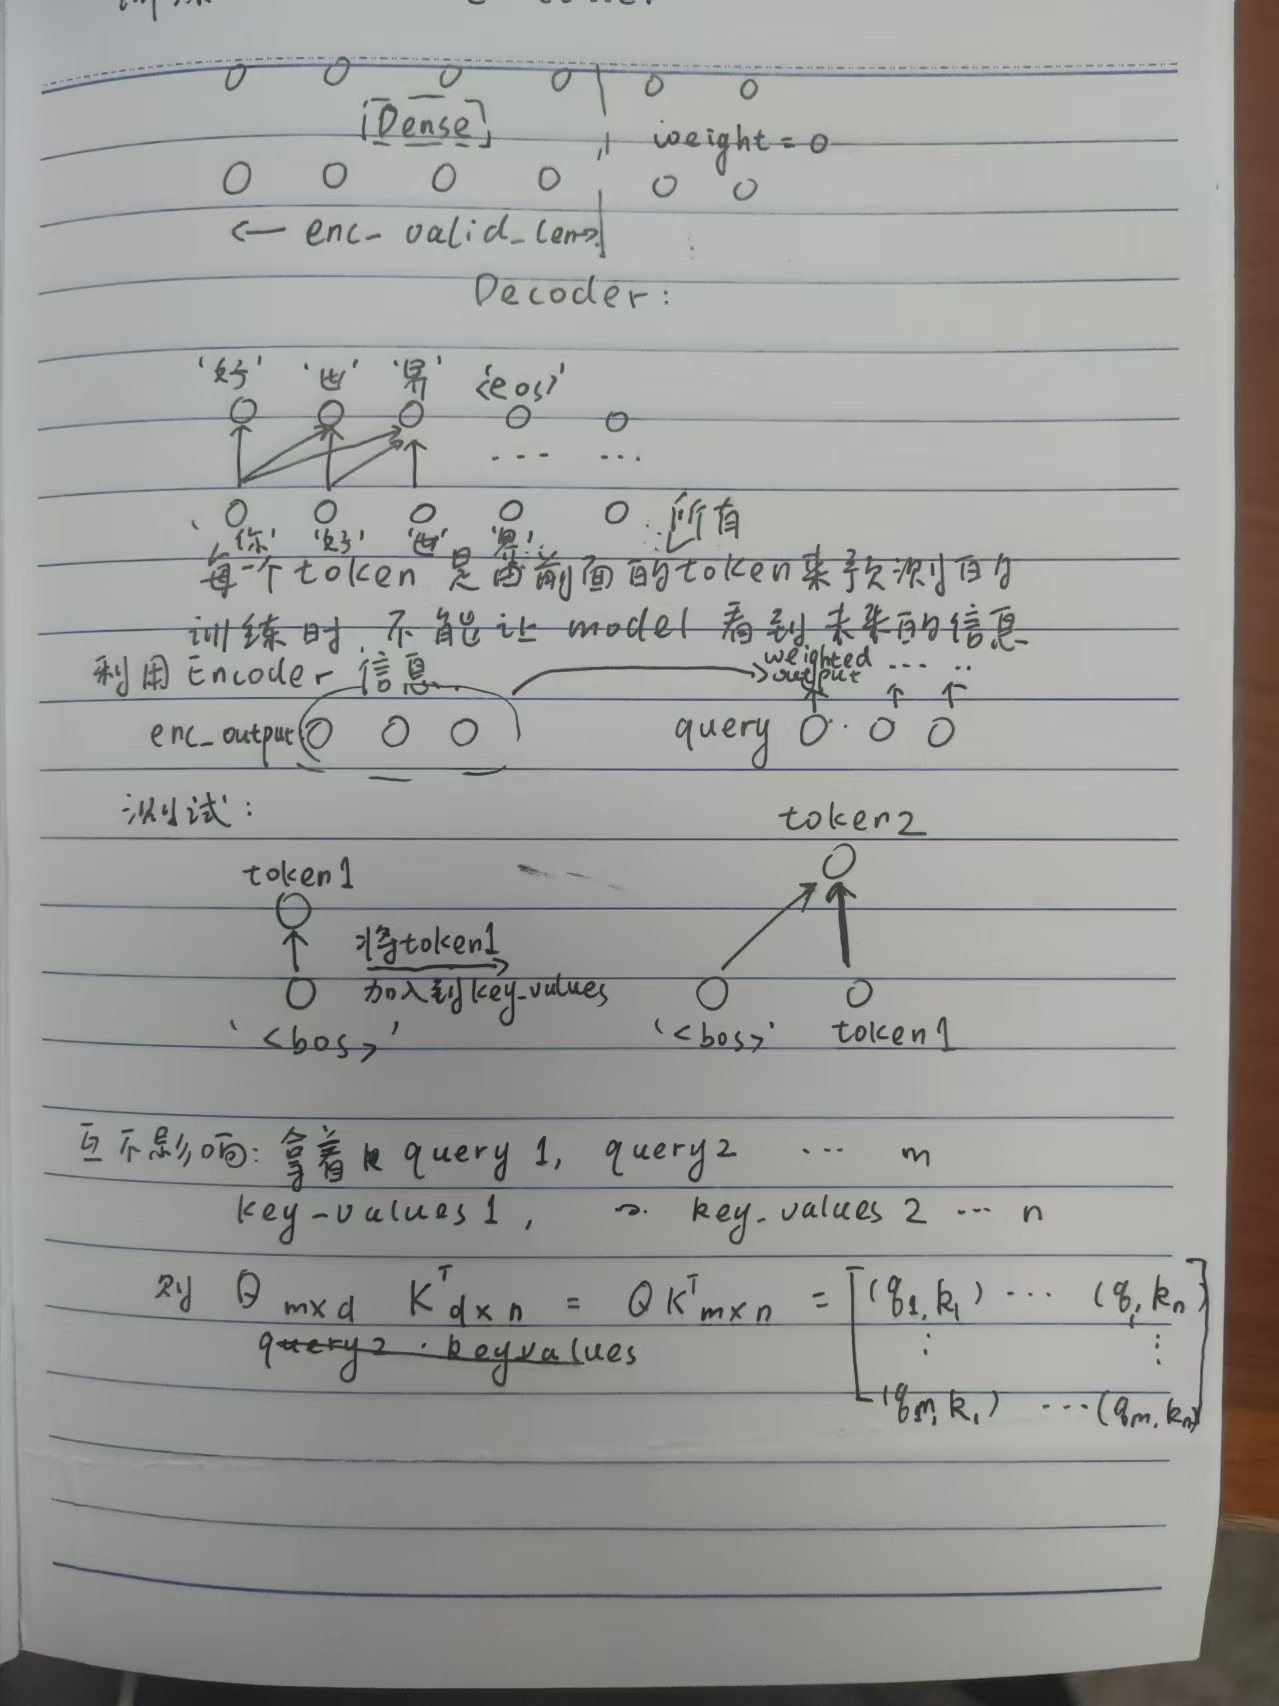 [Dense]
weight = 0
← enc_valid_len→
Decoder:
'好' '世' '界' '<eos>'
... ...
'你' '好' '世' '界' 所有
每一个token是由前面的token来预测的
训练时,不能让 model 看到未来的信息
利用Encoder 信息
weighted output ... ..
enc_output
query
测试:
token1
token2
将token1
加入到key_values
'<bos>'
'<bos>' token1
互不影响: 拿着 query 1, query2 ... m
key-values 1, key_values 2 ... n
则 Q m×d K^T d×n = QK^T m×n = [(q1,k1) ... (q1,kn)
⋮ ⋮
(qm,k1) ... (qm,kn)]
query2 · keyvalues